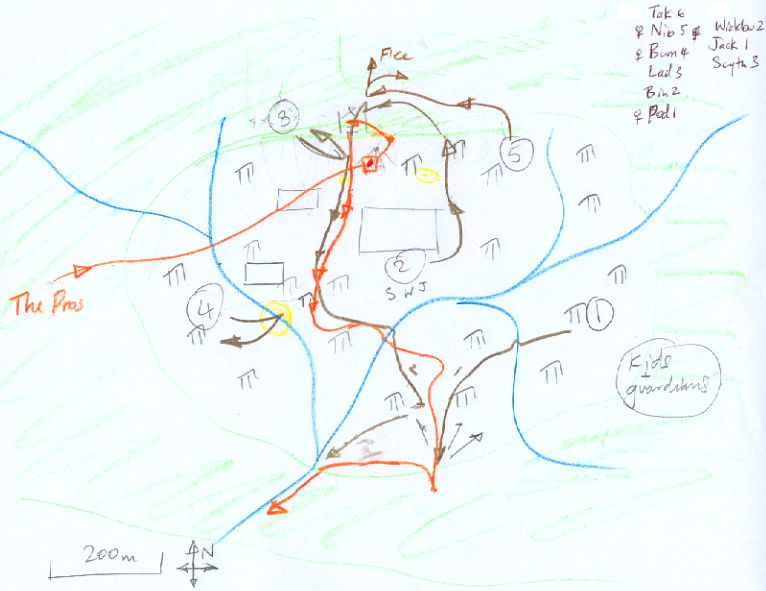 Tak 6
♀ Nib 5
♀ Bum 4
Lad 3
Bin 2
♀ Pod 1
Wicklow 2
Jack 1
Scyth 3
Flee
3
5
2
S W J
4
1
The Pros
Kids
guardians
200m
N